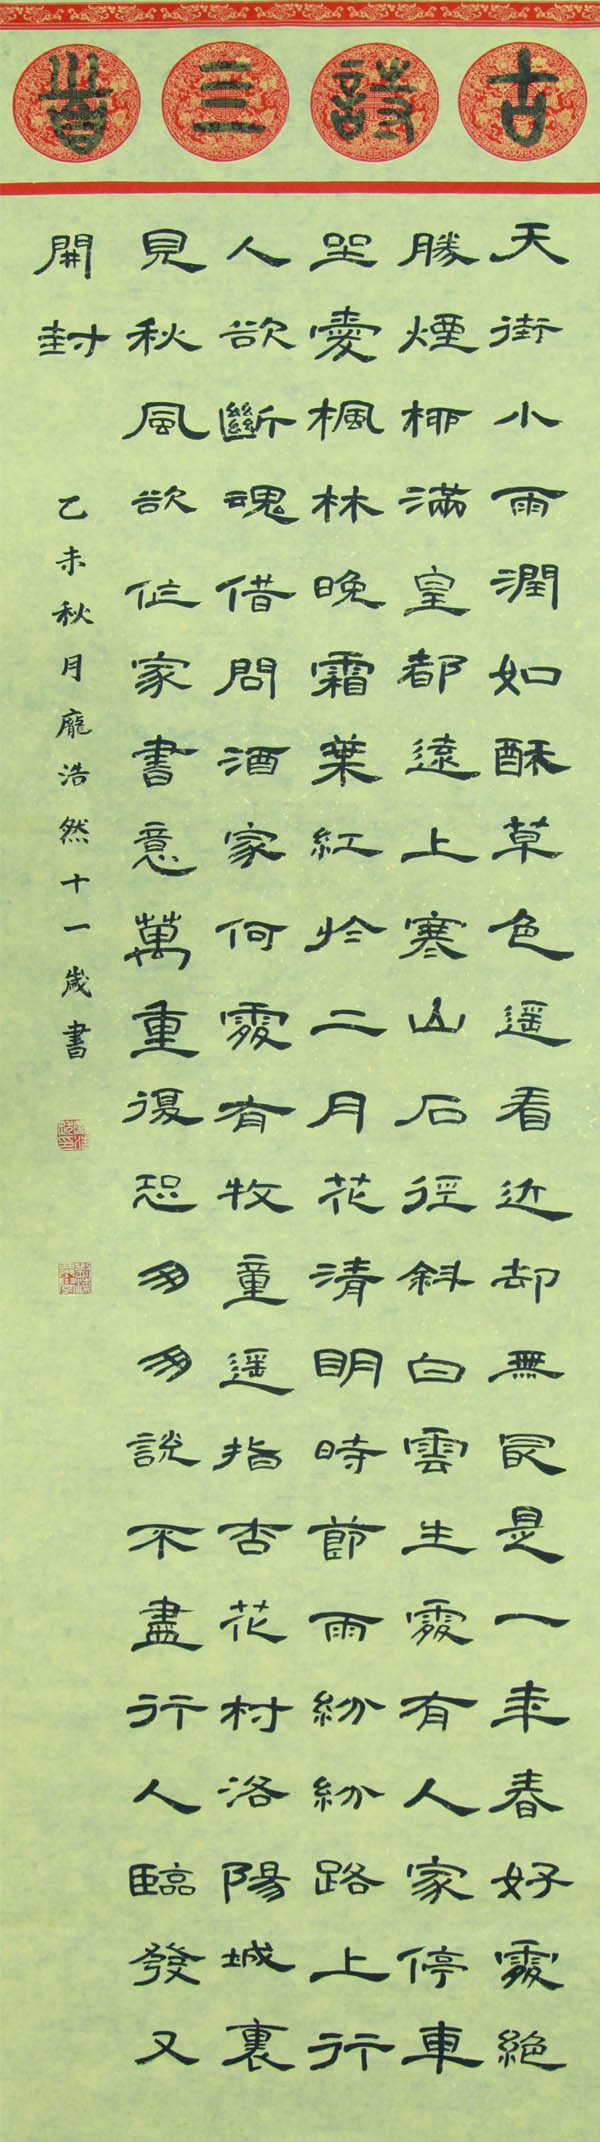 古詩三首
天街小雨潤如酥草色遥看近却無最是一年春好處絕
勝煙柳滿皇都遠上寒山石徑斜白雲生處有人家停車
坐愛楓林晚霜葉紅於二月花清明時節雨紛紛路上行
人欲斷魂借問酒家何處有牧童遥指杏花村洛陽城裏
見秋風欲作家書意萬重復恐匆匆說不盡行人臨發又
開封
乙未秋月龐浩然十一歲書